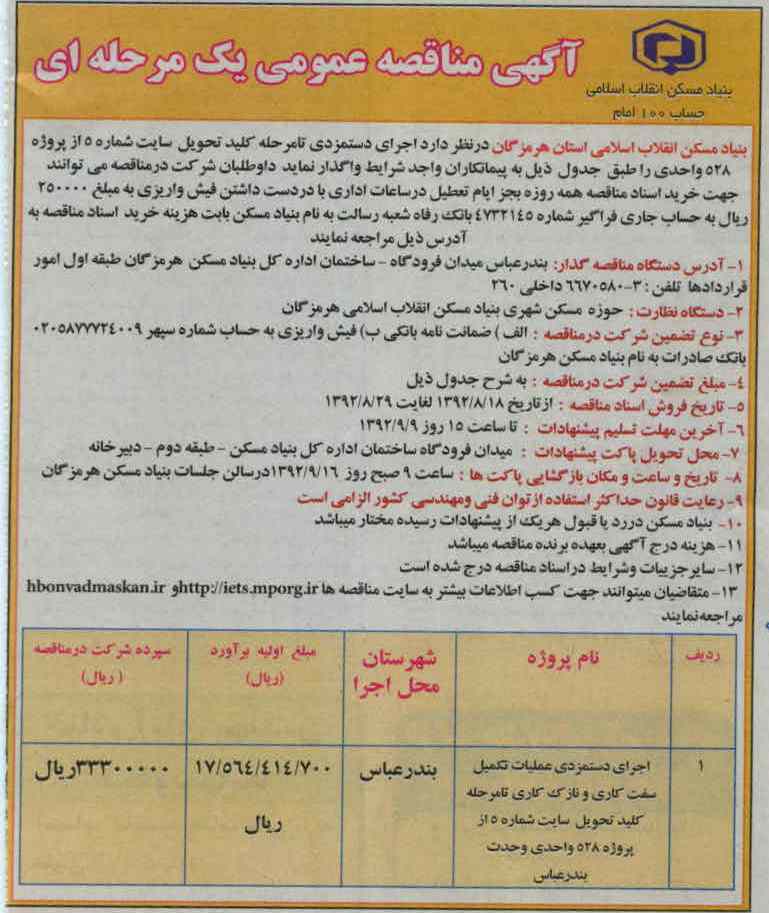 بنیاد مسکن انقلاب اسلامی
حساب ۱۰۰ امام
آگهی مناقصه عمومی یک مرحله ای
بنیاد مسکن انقلاب اسلامی استان هرمزگان درنظر دارد اجرای دستمزدی تامرحله کلید تحویل سایت شماره ۵ از پروژه
۵۲۸ واحدی را طبق جدول ذیل به پیمانکاران واجد شرایط واگذار نماید داوطلبان شرکت درمناقصه می توانند
جهت خرید اسناد مناقصه همه روزه بجز ایام تعطیل درساعات اداری با دردست داشتن فیش واریزی به مبلغ ۲۵۰۰۰۰
ریال به حساب جاری فراگیر شماره ٤۷۳۲۱٤۵ بانک رفاه شعبه رسالت به نام بنیاد مسکن بابت هزینه خرید اسناد مناقصه به
آدرس ذیل مراجعه نمایند
۱- آدرس دستگاه مناقصه گذار: بندرعباس میدان فرودگاه - ساختمان اداره کل بنیاد مسکن هرمزگان طبقه اول امور
قراردادها تلفن : ۳-۶۶۷۰۵۸۰ داخلی ۲۶۰
۲- دستگاه نظارت : حوزه مسکن شهری بنیاد مسکن انقلاب اسلامی هرمزگان
۳- نوع تضمین شرکت درمناقصه : الف ) ضمانت نامه بانکی ب) فیش واریزی به حساب شماره سپهر ۰۲۰۵۸۷۷۷۲٤۰۰۹
بانک صادرات به نام بنیاد مسکن هرمزگان
٤- مبلغ تضمین شرکت درمناقصه : به شرح جدول ذیل
۵- تاریخ فروش اسناد مناقصه : از تاریخ ۱۳۹۲/۸/۱۸ لغایت ۱۳۹۲/۸/۲۹
۶- آخرین مهلت تسلیم پیشنهادات : تا ساعت ۱۵ روز ۱۳۹۲/۹/۹
۷- محل تحویل پاکت پیشنهادات : میدان فرودگاه ساختمان اداره کل بنیاد مسکن - طبقه دوم - دبیرخانه
۸- تاریخ و ساعت و مکان بازگشایی پاکت ها : ساعت ۹ صبح روز ۱۳۹۲/۹/۱۶ درسالن جلسات بنیاد مسکن هرمزگان
۹- رعایت قانون حداکثر استفاده از توان فنی ومهندسی کشور الزامی است
۱۰- بنیاد مسکن دررد یا قبول هریک از پیشنهادات رسیده مختار میباشد
۱۱- هزینه درج آگهی بعهده برنده مناقصه میباشد
۱۲- سایر جزییات وشرایط دراسناد مناقصه درج شده است
۱۳- متقاضیان میتوانند جهت کسب اطلاعات بیشتر به سایت مناقصه ها http://iets.mporg.ir و hbonvadmaskan.ir
مراجعه نمایند
ردیف
نام پروژه
شهرستان
محل اجرا
مبلغ اولیه برآورد
(ریال)
سپرده شرکت درمناقصه
( ریال)
۱
اجرای دستمزدی عملیات تکمیل
سفت کاری و نازک کاری تامرحله
کلید تحویل سایت شماره ۵ از
پروژه ۵۲۸ واحدی وحدت
بندرعباس
بندرعباس
۱۷/۵۶٤/٤۱٤/۷۰۰
ریال
۳۳۳۰۰۰۰۰۰ریال